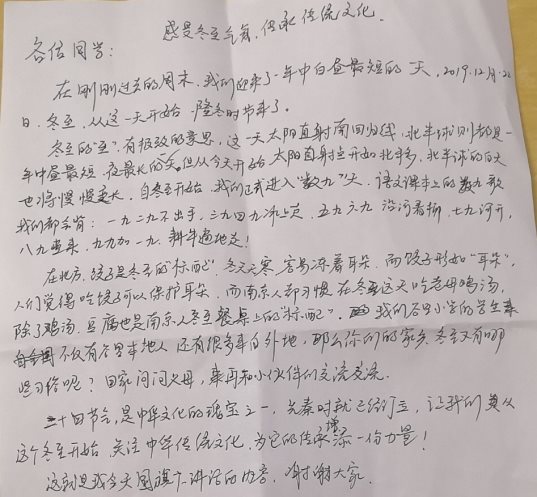 感受冬至气氛，传承传统文化.
各位同学：
在刚刚过去的周末，我们迎来了一年中白昼最短的一天，2019.12月.22
日，冬至，从这一天开始，隆冬时节来了。
冬至的“至”，有极致的意思，这一天太阳直射南回归线，北半球则都是一
年中昼最短、夜最长的一天，但从今天开始太阳直射点开始北移，北半球的白天
也将慢慢变长，自冬至开始，我们正式进入“数九”天，语文课本上的数九歌
我们都会背：一九二九不出手，三九四九冰上走，五九六九，沿河看柳，七九河开，
八九雁来，九九加一九，耕牛遍地走！
在北方，饺子是冬至的“标配”，冬天天寒，容易冻着耳朵，而饺子形如“耳朵”，
人们觉得吃饺子可以保护耳朵，而南京人却习惯在冬至这天吃老母鸡汤，
除了鸡汤，豆腐也是南京人冬至餐桌上的“标配”。我们谷里小学的学生来
不仅有谷里本地人，还有很多来自外地，那么你们的家乡冬至又有哪
些习俗呢？回家问问父母，来再和小伙伴们交流交流.
二十四节气，是中华文化的瑰宝之一，先秦时就已经订立，让我们从
这个冬至开始，关注中华传统文化，为它的传承增添一份力量！
这就是我今天国旗下讲话的内容，谢谢大家.